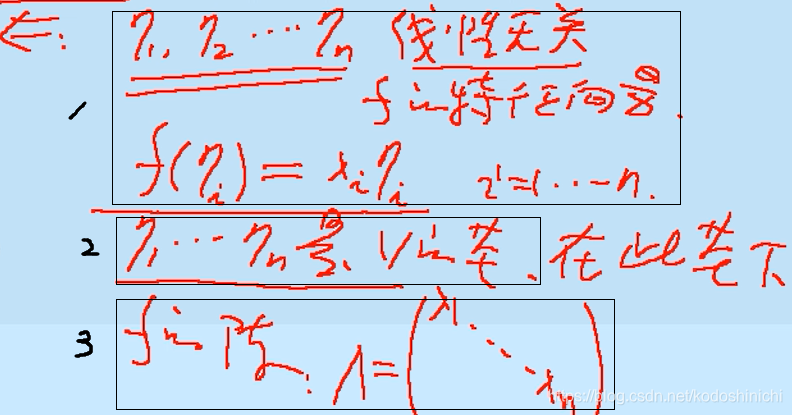 ⇐:
1
η₁, η₂ ⋯ ηₙ 线性无关
f 的特征向量.
f(ηᵢ) = λᵢηᵢ i=1⋯n.
2 η₁⋯ηₙ 是 V的基. 在此基下
3 f的阵. Λ = (λ₁ ⋱ λₙ)
https://blog.csdn.net/kodoshinichi